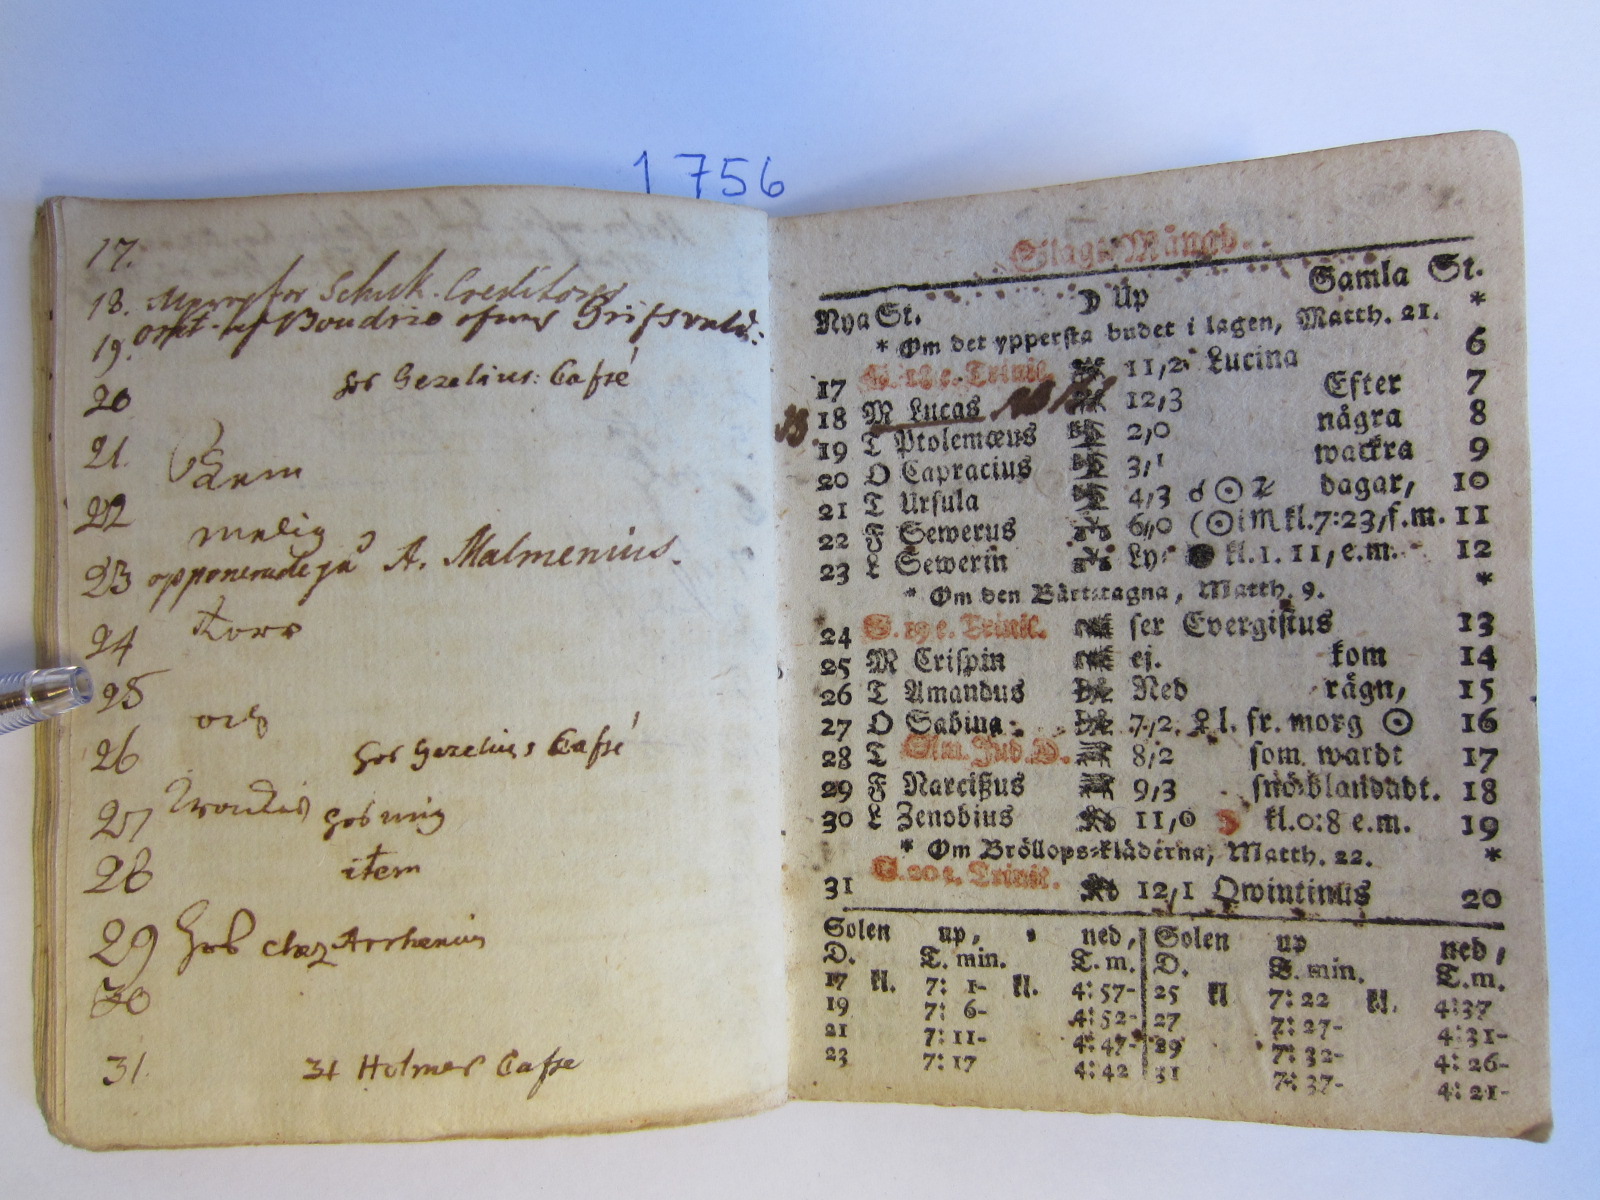 1756
17.
18. Schuk. Creditorer
19.
20 hos Gezelius: Caffé
21.
22
23 opponerade på A. Malmenius.
24 torr
25 och
26 hos Gezelius Caffé
27 hos mig
28 item
29 chez Arrhenius
30
31. 31 Holmers Caffe
Slagt-Månad.
Nya St. ☽ Up Gamla St.
* Om det yppersta budet i lagen, Matth. 21. *
17 S. 18 e. Trinit. 11,2 Lucina 6
18 M Lucas 12,3 Efter 7
19 T Ptolemæus 2,0 några 8
20 O Capracius 3,1 wackra 9
21 T Ursula 4,3 ☌ ☉ ♃ dagar, 10
22 F Sewerus 6,0 (☉ i ♏ kl. 7:23, f.m. 11
23 L Sewerin Ly- ● kl. 1. 11, e.m. 12
* Om den Bårttagna, Matth. 9. *
24 S. 19 e. Trinit. ser Evergistus 13
25 M Crispin ej. kom 14
26 T Amandus Ned rägn, 15
27 O Sabina 7,2 ♀ l. fr. morg ☉ 16
28 T Sim. Jud. D. 8,2 som wardt 17
29 F Narcißus 9,3 snöblandadt. 18
30 L Zenobius 11,0 ☽ kl. 0:8 e.m. 19
* Om Bröllops-kläderna, Matth. 22. *
31 S. 20 e. Trinit. 12,1 Qwintinus 20
Solen up, ned, Solen up ned,
D. T. min. T. m. D. T. min. T. m.
17 kl. 7: 1- kl. 4:57- 25 kl 7:22 kl. 4:37
19 7: 6- 4:52- 27 7:27- 4:31-
21 7:11- 4:47- 29 7:32- 4:26-
23 7:17 4:42 31 7:37- 4:21-